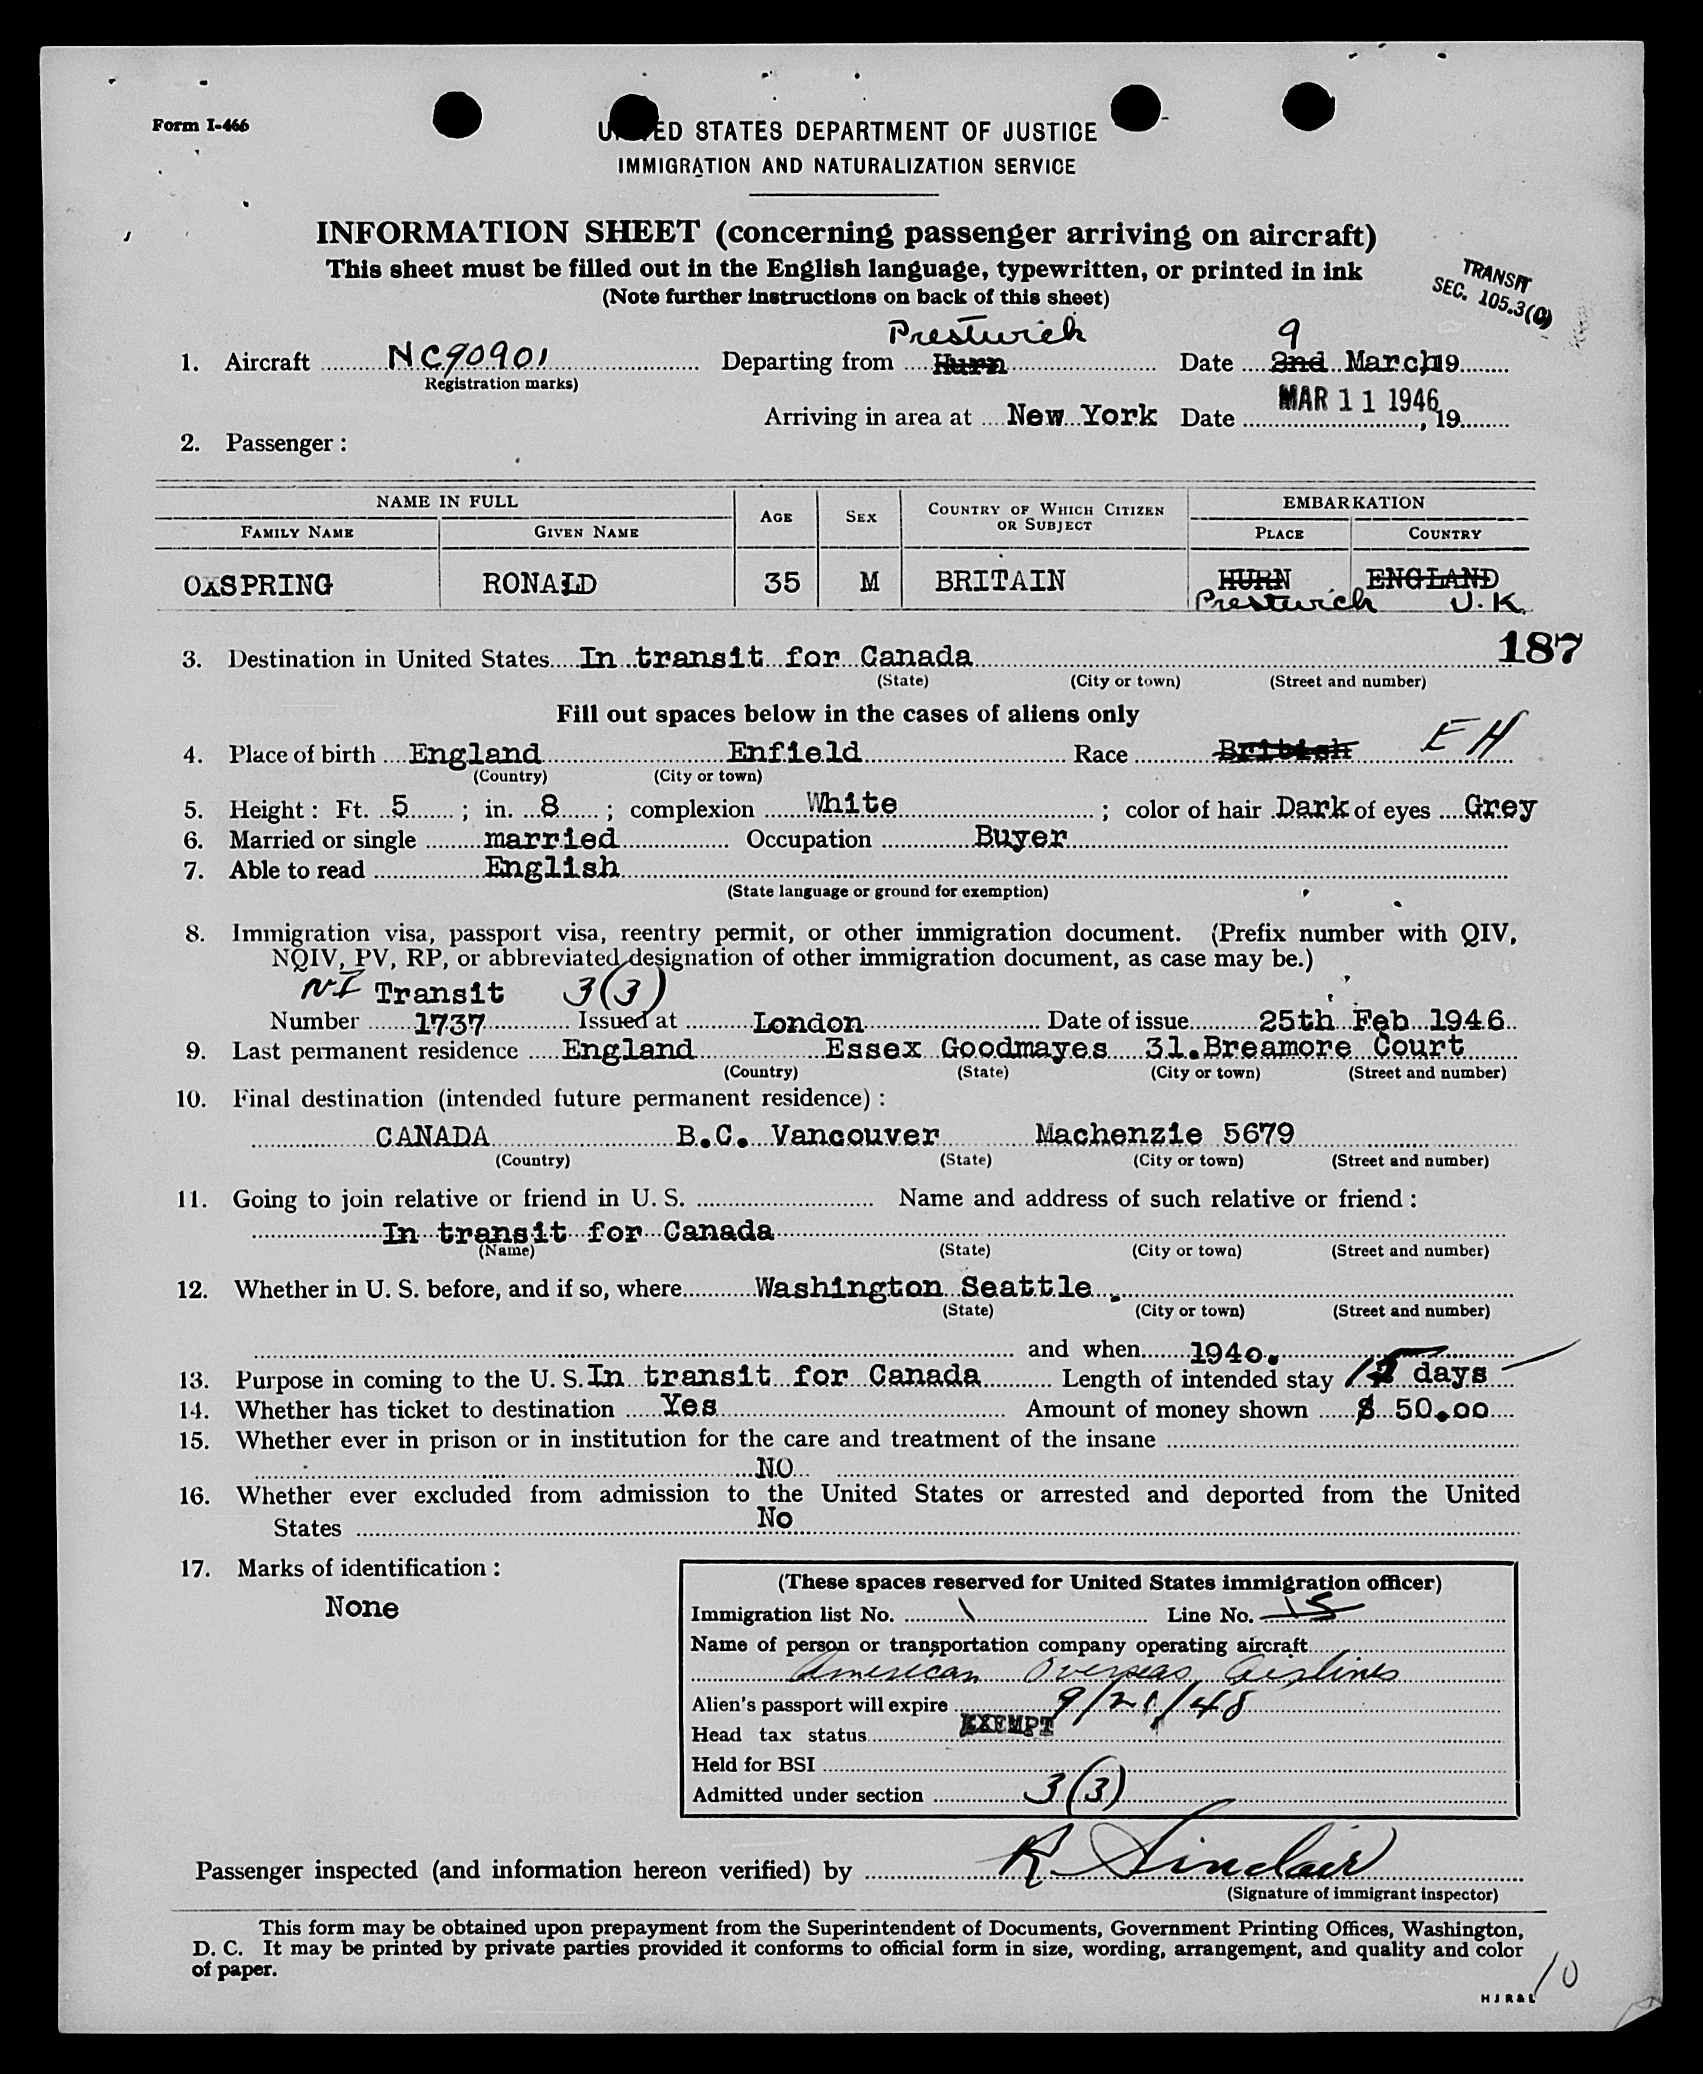 Form I-466
UNITED STATES DEPARTMENT OF JUSTICE
IMMIGRATION AND NATURALIZATION SERVICE
INFORMATION SHEET (concerning passenger arriving on aircraft)
This sheet must be filled out in the English language, typewritten, or printed in ink
(Note further instructions on back of this sheet)
TRANSIT
SEC. 105.3(C)
Prestwich 9
1. Aircraft NC90901 Departing from Hurn Date 2nd March, 19
(Registration marks)
Arriving in area at New York Date MAR 11 1946, 19
2. Passenger :
NAME IN FULL AGE SEX COUNTRY OF WHICH CITIZEN OR SUBJECT EMBARKATION
FAMILY NAME GIVEN NAME PLACE COUNTRY
OXSPRING RONALD 35 M BRITAIN HURN ENGLAND
Prestwich U.K.
187
3. Destination in United States In transit for Canada
(State) (City or town) (Street and number)
Fill out spaces below in the cases of aliens only
4. Place of birth England Enfield Race British EH
(Country) (City or town)
5. Height : Ft. 5 ; in. 8 ; complexion White ; color of hair Dark of eyes Grey
6. Married or single married Occupation Buyer
7. Able to read English
(State language or ground for exemption)
8. Immigration visa, passport visa, reentry permit, or other immigration document. (Prefix number with QIV,
NQIV, PV, RP, or abbreviated designation of other immigration document, as case may be.)
NI Transit 3(3)
Number 1737 Issued at London Date of issue 25th Feb 1946
9. Last permanent residence England Essex Goodmayes 31.Breamore Court
(Country) (State) (City or town) (Street and number)
10. Final destination (intended future permanent residence) :
CANADA B.C. Vancouver Machenzie 5679
(Country) (State) (City or town) (Street and number)
11. Going to join relative or friend in U. S. Name and address of such relative or friend :
In transit for Canada
(Name) (State) (City or town) (Street and number)
12. Whether in U. S. before, and if so, where Washington Seattle.
(State) (City or town) (Street and number)
and when 1940.
13. Purpose in coming to the U. S. In transit for Canada Length of intended stay days
14. Whether has ticket to destination Yes Amount of money shown $ 50.00
15. Whether ever in prison or in institution for the care and treatment of the insane
NO
16. Whether ever excluded from admission to the United States or arrested and deported from the United
States No
17. Marks of identification :
None
(These spaces reserved for United States immigration officer)
Immigration list No. 1 Line No. 15
Name of person or transportation company operating aircraft
American Overseas Airlines
Alien's passport will expire 9/21/48
Head tax status EXEMPT
Held for BSI
Admitted under section 3(3)
Passenger inspected (and information hereon verified) by R Sinclair
(Signature of immigrant inspector)
This form may be obtained upon prepayment from the Superintendent of Documents, Government Printing Offices, Washington,
D. C. It may be printed by private parties provided it conforms to official form in size, wording, arrangement, and quality and color
of paper.
10
H J R & L